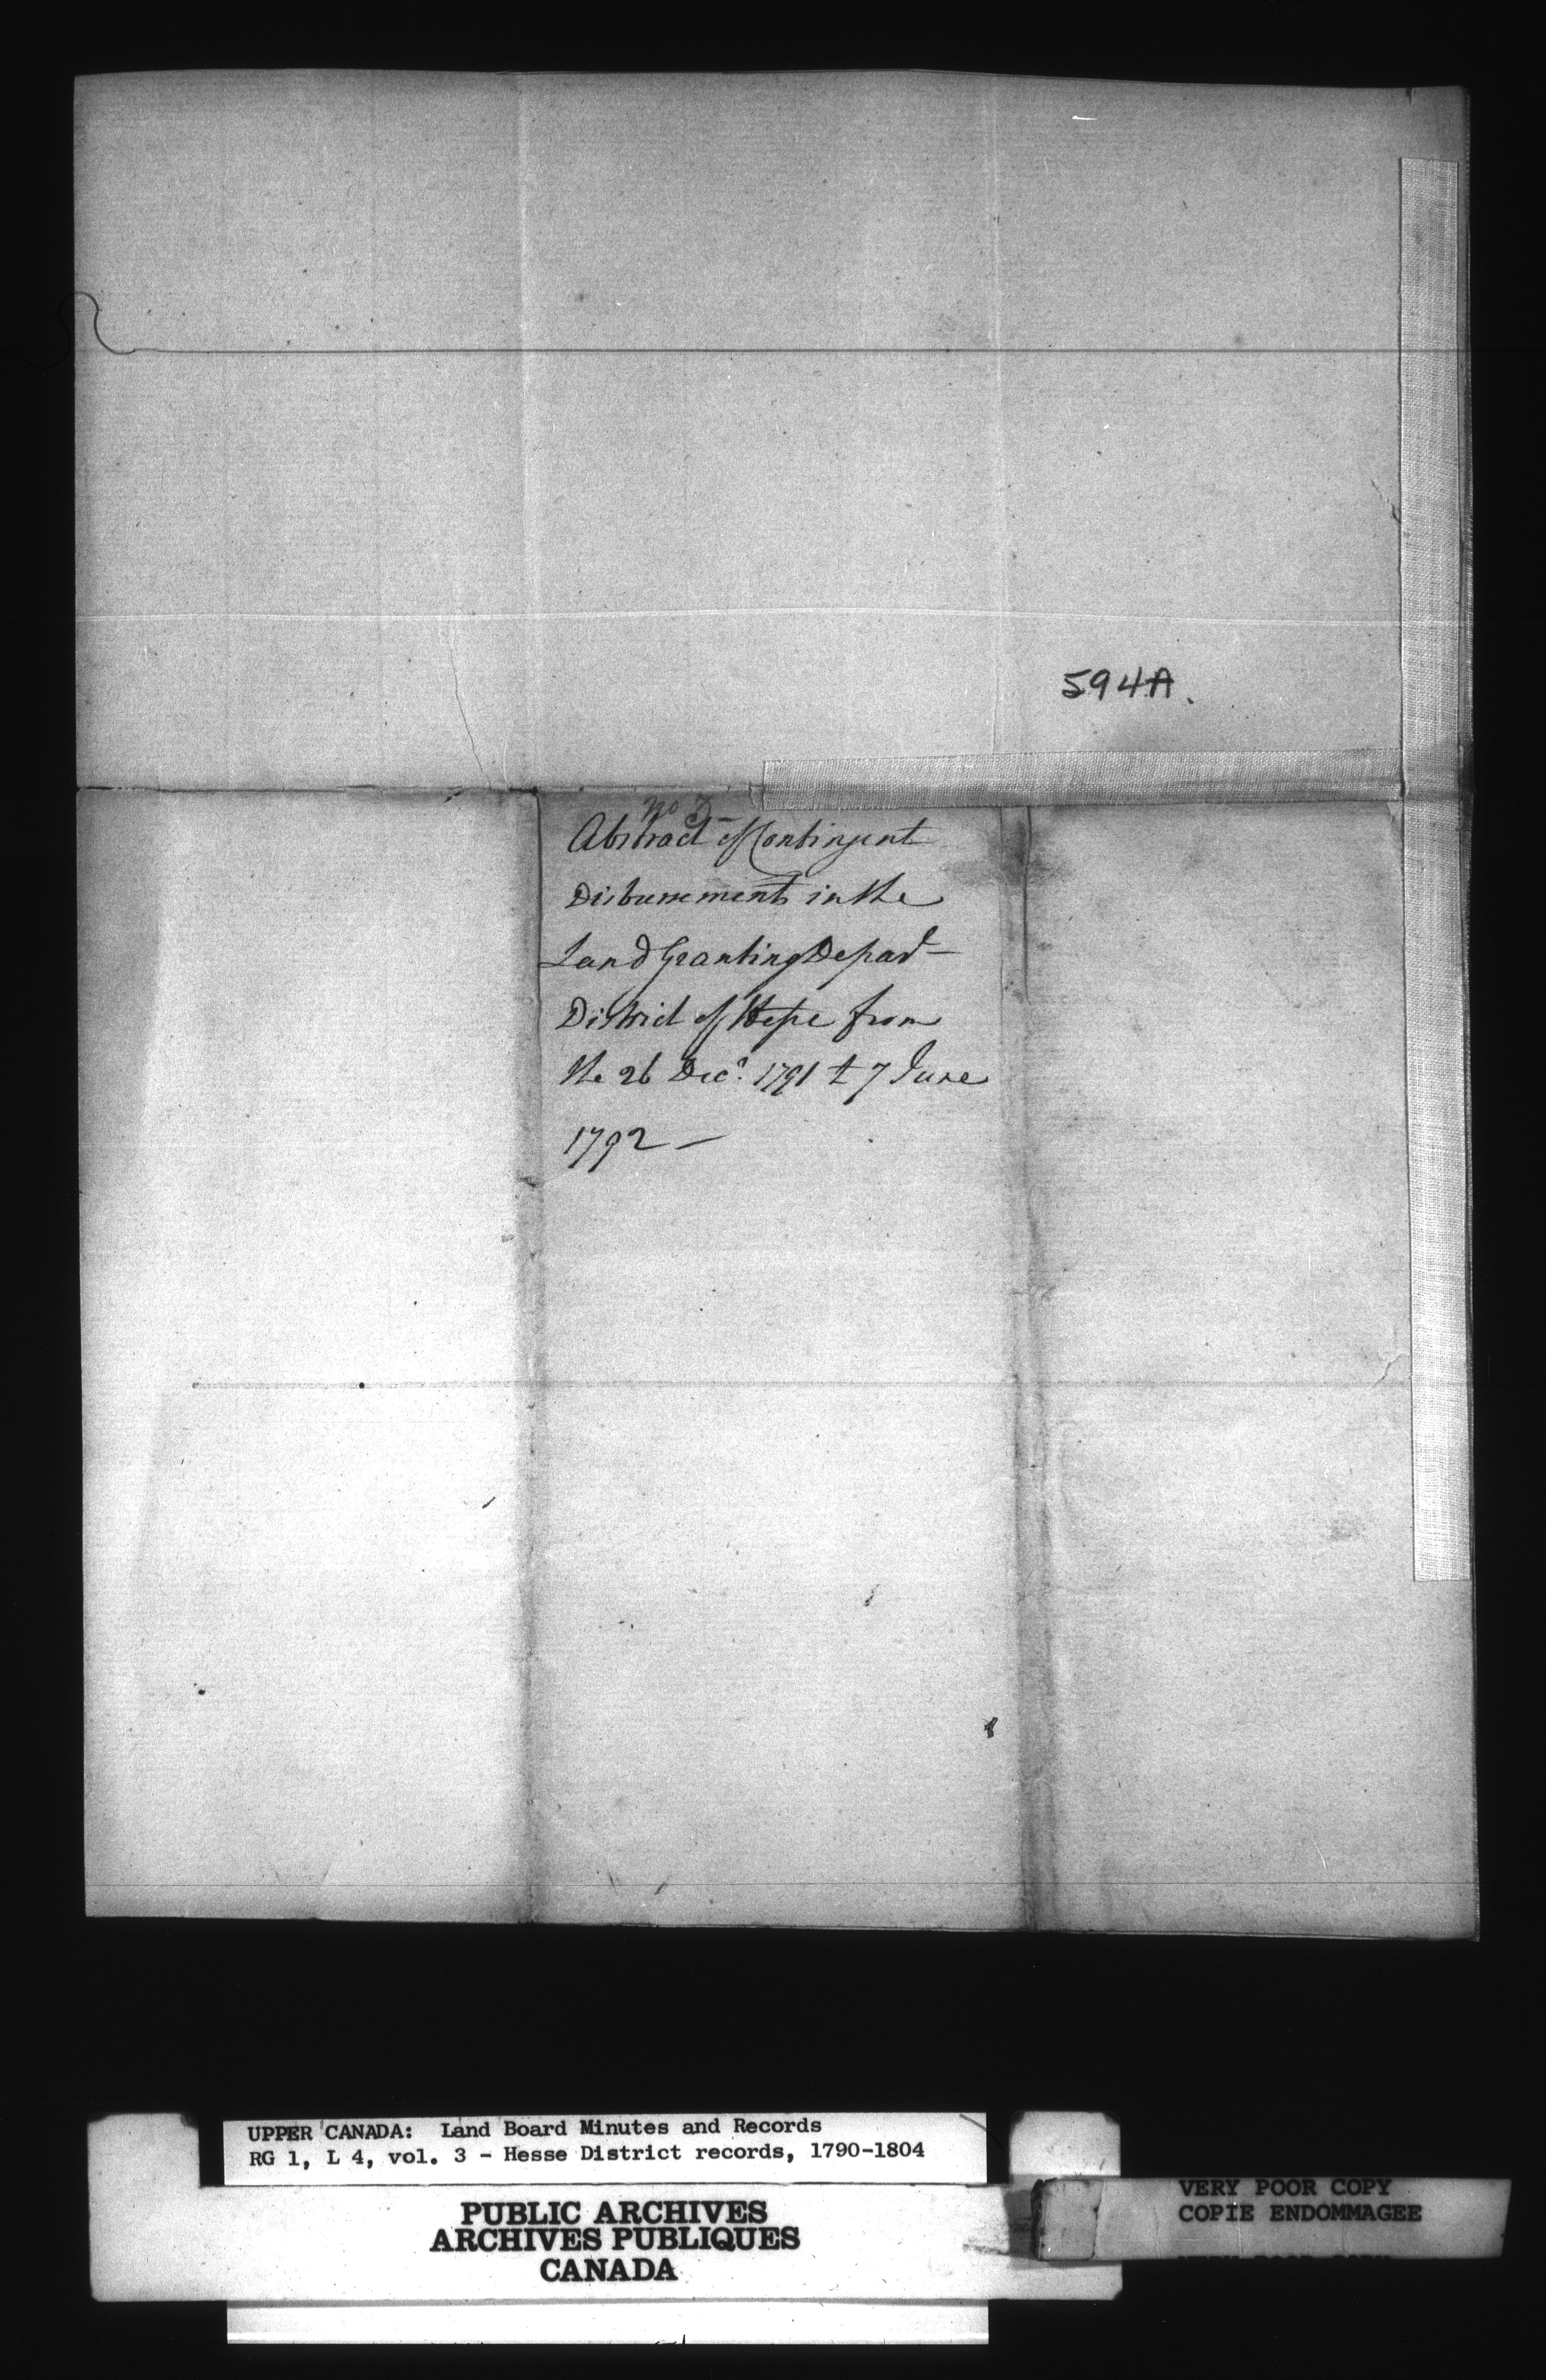 594A.
No 3
Abstract of Contingent
Disbursements in the
Land Granting Depart—
District of Hesse from
the 26 Decr. 1791 to 7 June
1792 —
UPPER CANADA: Land Board Minutes and Records
RG 1, L 4, vol. 3 - Hesse District records, 1790-1804
PUBLIC ARCHIVES
ARCHIVES PUBLIQUES
CANADA
VERY POOR COPY
COPIE ENDOMMAGEE